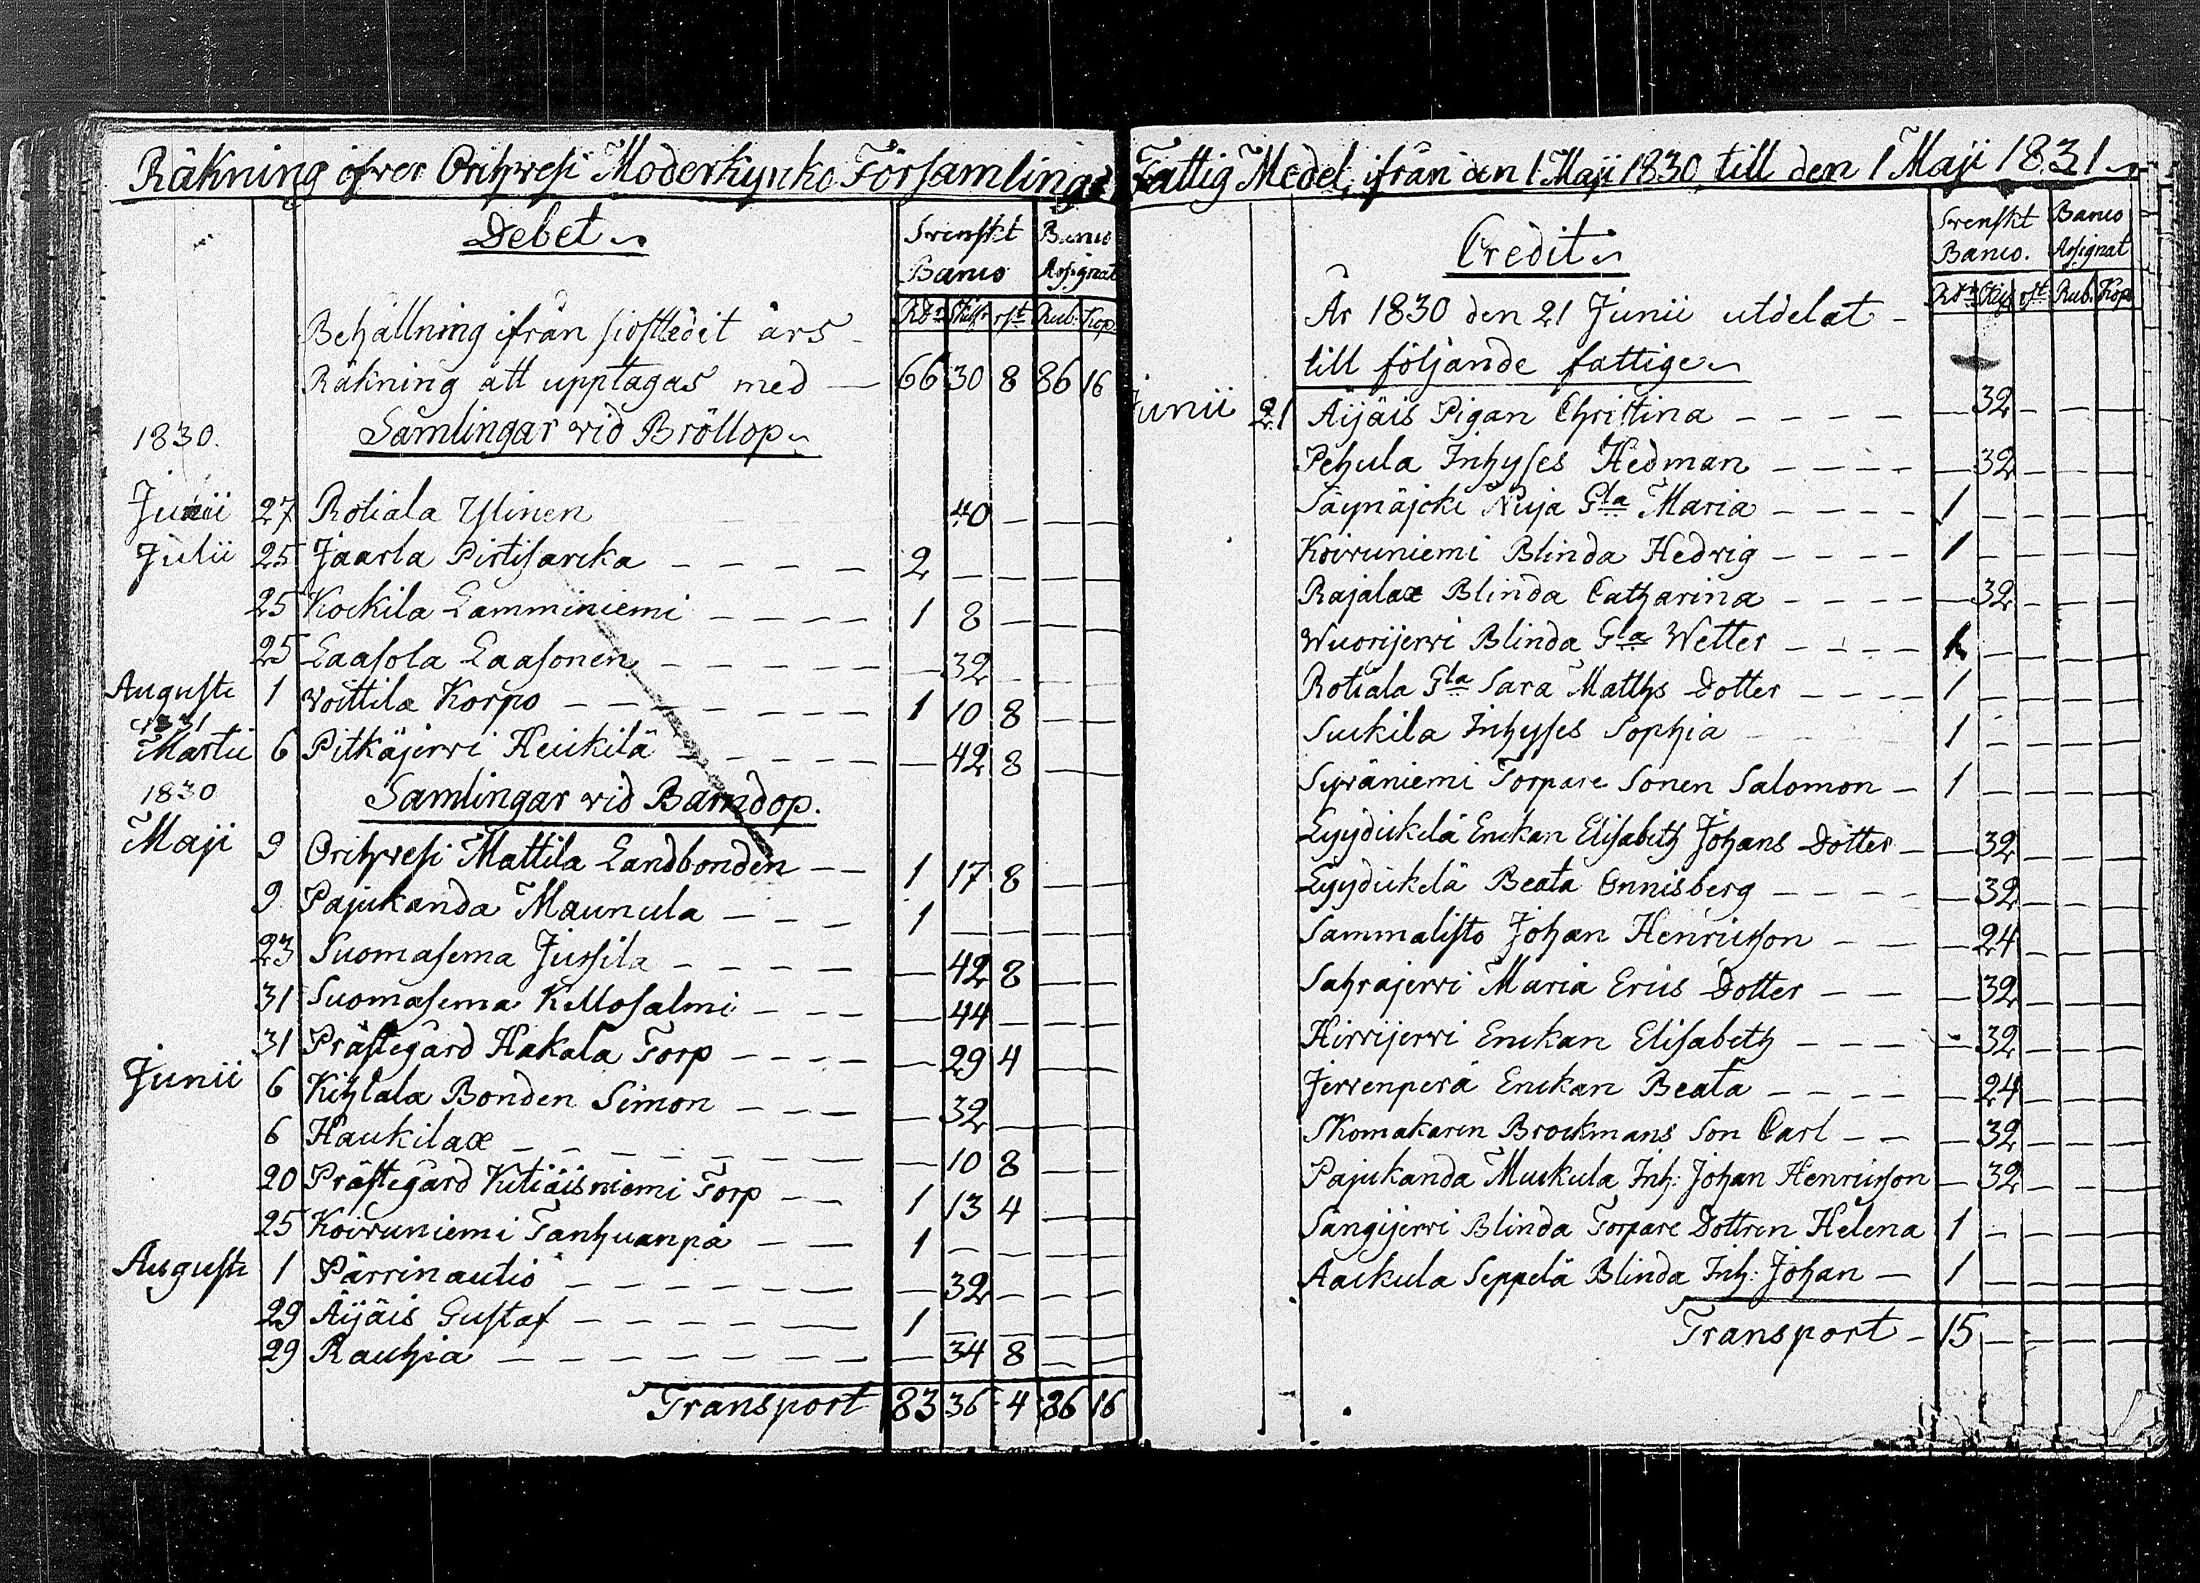 Räkning öfver Orihvesi Moderkyrko Församlings Fattig Medel, ifrån den 1 Maji 1830 till den 1 Maji 1831
Debet
Svenskt Banco
Banco Assignat
Rdr Skill. rst. Rub. Kop.
Behållning ifrån sistledit års
Räkning att upptagas med — 66 30 8 86 16
1830.
Samlingar vid Bröllop
Junii 27 Rotiala Ylinen 40 — — —
Julii 25 Jaarla Pirtisarcka — — — — 2 — — — —
25 Kockila Lamminiemi — — — — 1 8 — — —
25 Laasola Laasonen — — — — — 32 — — —
Augusti 1 Voittila Korpo — — — — 1 10 8 — —
1831
Martii 6 Pitkäjerwi Heickilä — — — — — 42 8 — —
1830
Samlingar vid Barndop.
Maji 9 Orihvesi Mattila Landbonden — — 1 17 8 — —
9 Pajukanda Maunula — — — 1 — — — —
23 Suomasema Jussila — — — — — 42 8 — —
31 Suomasema Kellosalmi — — — — 44 — — —
31 Prästegård Hakala Torp — — — — 29 4 — —
Junii 6 Kihlala Bonden Simon — — — — 32 — — —
6 Haukilax — — — — — — 10 8 — —
20 Prästegård Kutiäisniemi Torp — — 1 13 4 — —
25 Koivuniemi Tanhuanpä — — 1 — — — —
Augusti 1 Pärrinautio — — — — — 32 — — —
29 Äijäis Gustaf — — — — 1 — — — —
29 Rauhia — — — — — — — 34 8 — —
Transport 83 36 4 86 16
Credit
Svenskt Banco.
Banco Assignat
Rdr Skill. rst. Rub. Kop.
År 1830 den 21 Junii utdelat
till följande fattige
Junii 21 Äijäis Pigan Christina — — — — — 32 — — —
Pehula Inhyses Hedman — — — — — 32 — — —
Säynäjoki Nuja Gla Maria — — — — 1 — — — —
Koivuniemi Blinda Hedvig — — — — 1 — — — —
Rajalax Blinda Catharina — — — — — 32 — — —
Wuorijerwi Blinda Gla Wetter — — — — 1 — — — —
Rotiala Gla Sara Matths Dotter — — — 1 — — — —
Suckila Inhyses Sophia 1 — — — —
Syväniemi Torpare Sonen Salomon — 1 — — — —
Lyydickelä Enckan Elisabeth Johans Dotter — — 32 — — —
Lyydickelä Beata Onnisberg — — — — — 32 — — —
Sammalisto Johan Henricsson — — — 24 — — —
Sahrajerwi Maria Erics Dotter — — — 32 — — —
Hirvijerwi Enckan Elisabeth — — — — 32 — — —
Jervenperä Enckan Beata — — — — — 24 — — —
Skomakaren Brockmans Son Carl — — — 32 — — —
Pajukanda Muckula Inh: Johan Henricsson — 32 — — —
Sängijerwi Blinda Torpare Dottren Helena 1 — — — —
Aackula Seppelä Blinda Inh: Johan — 1 — — — —
Transport — 15 — — — —